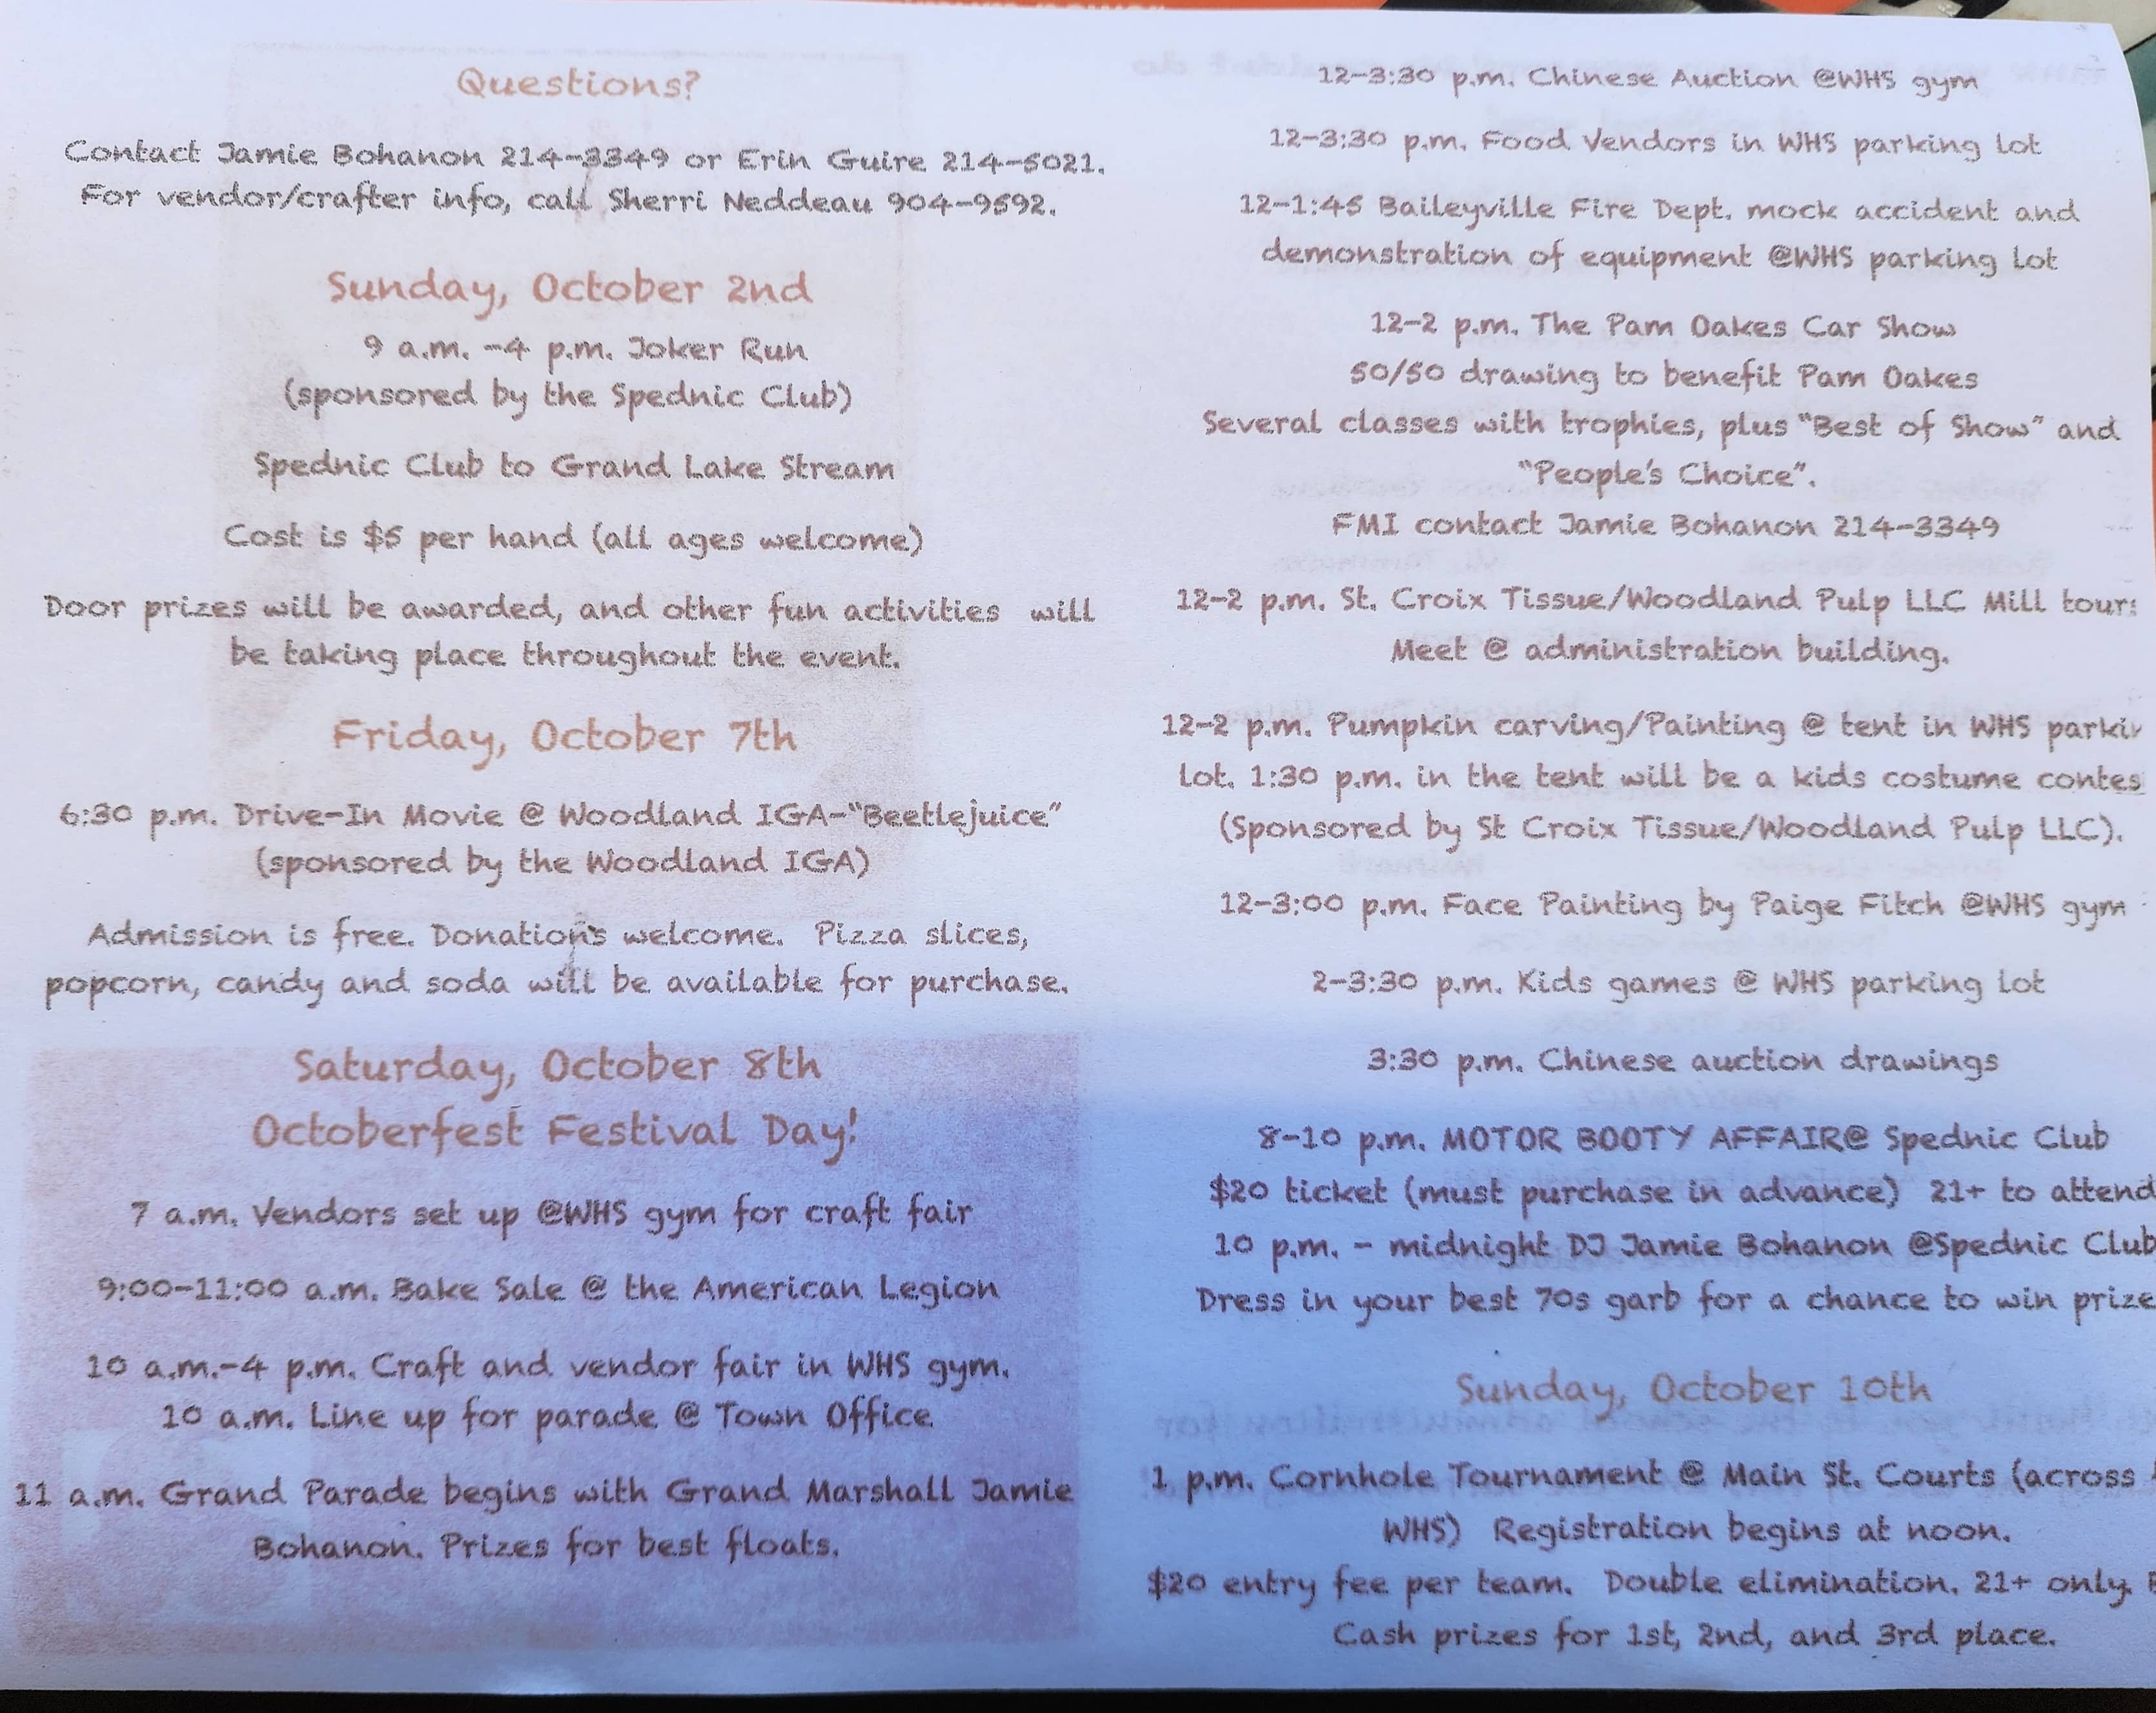 Questions?
Contact Jamie Bohanon 214-3349 or Erin Guire 214-5021.
For vendor/crafter info, call Sherri Neddeau 904-9592.
Sunday, October 2nd
9 a.m. -4 p.m. Joker Run
(sponsored by the Spednic Club)
Spednic Club to Grand Lake Stream
Cost is $5 per hand (all ages welcome)
Door prizes will be awarded, and other fun activities will
be taking place throughout the event.
Friday, October 7th
6:30 p.m. Drive-In Movie @ Woodland IGA-"Beetlejuice"
(sponsored by the Woodland IGA)
Admission is free. Donations welcome. Pizza slices,
popcorn, candy and soda will be available for purchase.
Saturday, October 8th
Octoberfest Festival Day!
7 a.m. Vendors set up @WHS gym for craft fair
9:00-11:00 a.m. Bake Sale @ the American Legion
10 a.m.-4 p.m. Craft and vendor fair in WHS gym.
10 a.m. Line up for parade @ Town Office
11 a.m. Grand Parade begins with Grand Marshall Jamie
Bohanon. Prizes for best floats.
12-3:30 p.m. Chinese Auction @WHS gym
12-3:30 p.m. Food Vendors in WHS parking lot
12-1:45 Baileyville Fire Dept. mock accident and
demonstration of equipment @WHS parking lot
12-2 p.m. The Pam Oakes Car Show
50/50 drawing to benefit Pam Oakes
Several classes with trophies, plus "Best of Show" and
"People's Choice".
FMI contact Jamie Bohanon 214-3349
12-2 p.m. St. Croix Tissue/Woodland Pulp LLC Mill tour
Meet @ administration building.
12-2 p.m. Pumpkin carving/Painting @ tent in WHS parkin
lot. 1:30 p.m. in the tent will be a kids costume contes
(Sponsored by St Croix Tissue/Woodland Pulp LLC).
12-3:00 p.m. Face Painting by Paige Fitch @WHS gym
2-3:30 p.m. Kids games @ WHS parking lot
3:30 p.m. Chinese auction drawings
8-10 p.m. MOTOR BOOTY AFFAIR@ Spednic Club
$20 ticket (must purchase in advance) 21+ to attend
10 p.m. - midnight DJ Jamie Bohanon @Spednic Club
Dress in your best 70s garb for a chance to win prize
Sunday, October 10th
1 p.m. Cornhole Tournament @ Main St. Courts (across
WHS) Registration begins at noon.
$20 entry fee per team. Double elimination. 21+ only.
Cash prizes for 1st, 2nd, and 3rd place.